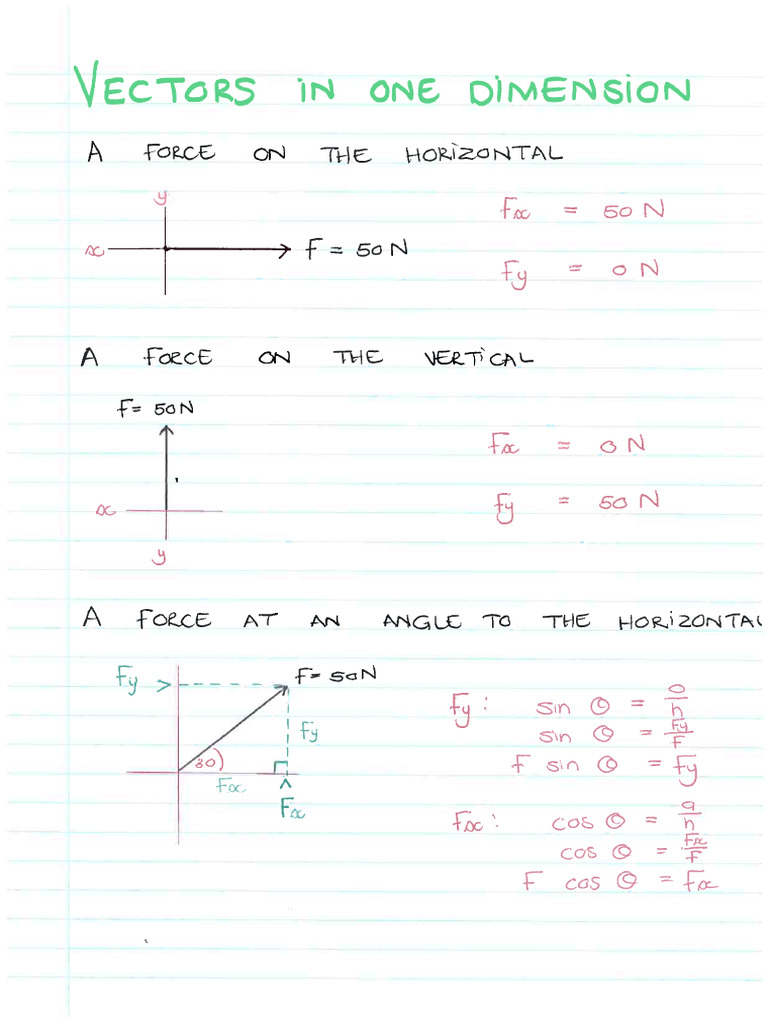 VECTORS IN ONE DIMENSION
A FORCE ON THE HORIZONTAL
y
x
F = 50N
Fx = 50 N
Fy = 0 N
A FORCE ON THE VERTICAL
F = 50N
x
y
Fx = 0 N
Fy = 50 N
A FORCE AT AN ANGLE TO THE HORIZONTAL
Fy >
F = 50N
Fy
30
Fx
^
Fx
Fy: sin θ = o/h
sin θ = Fy/F
F sin θ = Fy
Fx: cos θ = a/h
cos θ = Fx/F
F cos θ = Fx